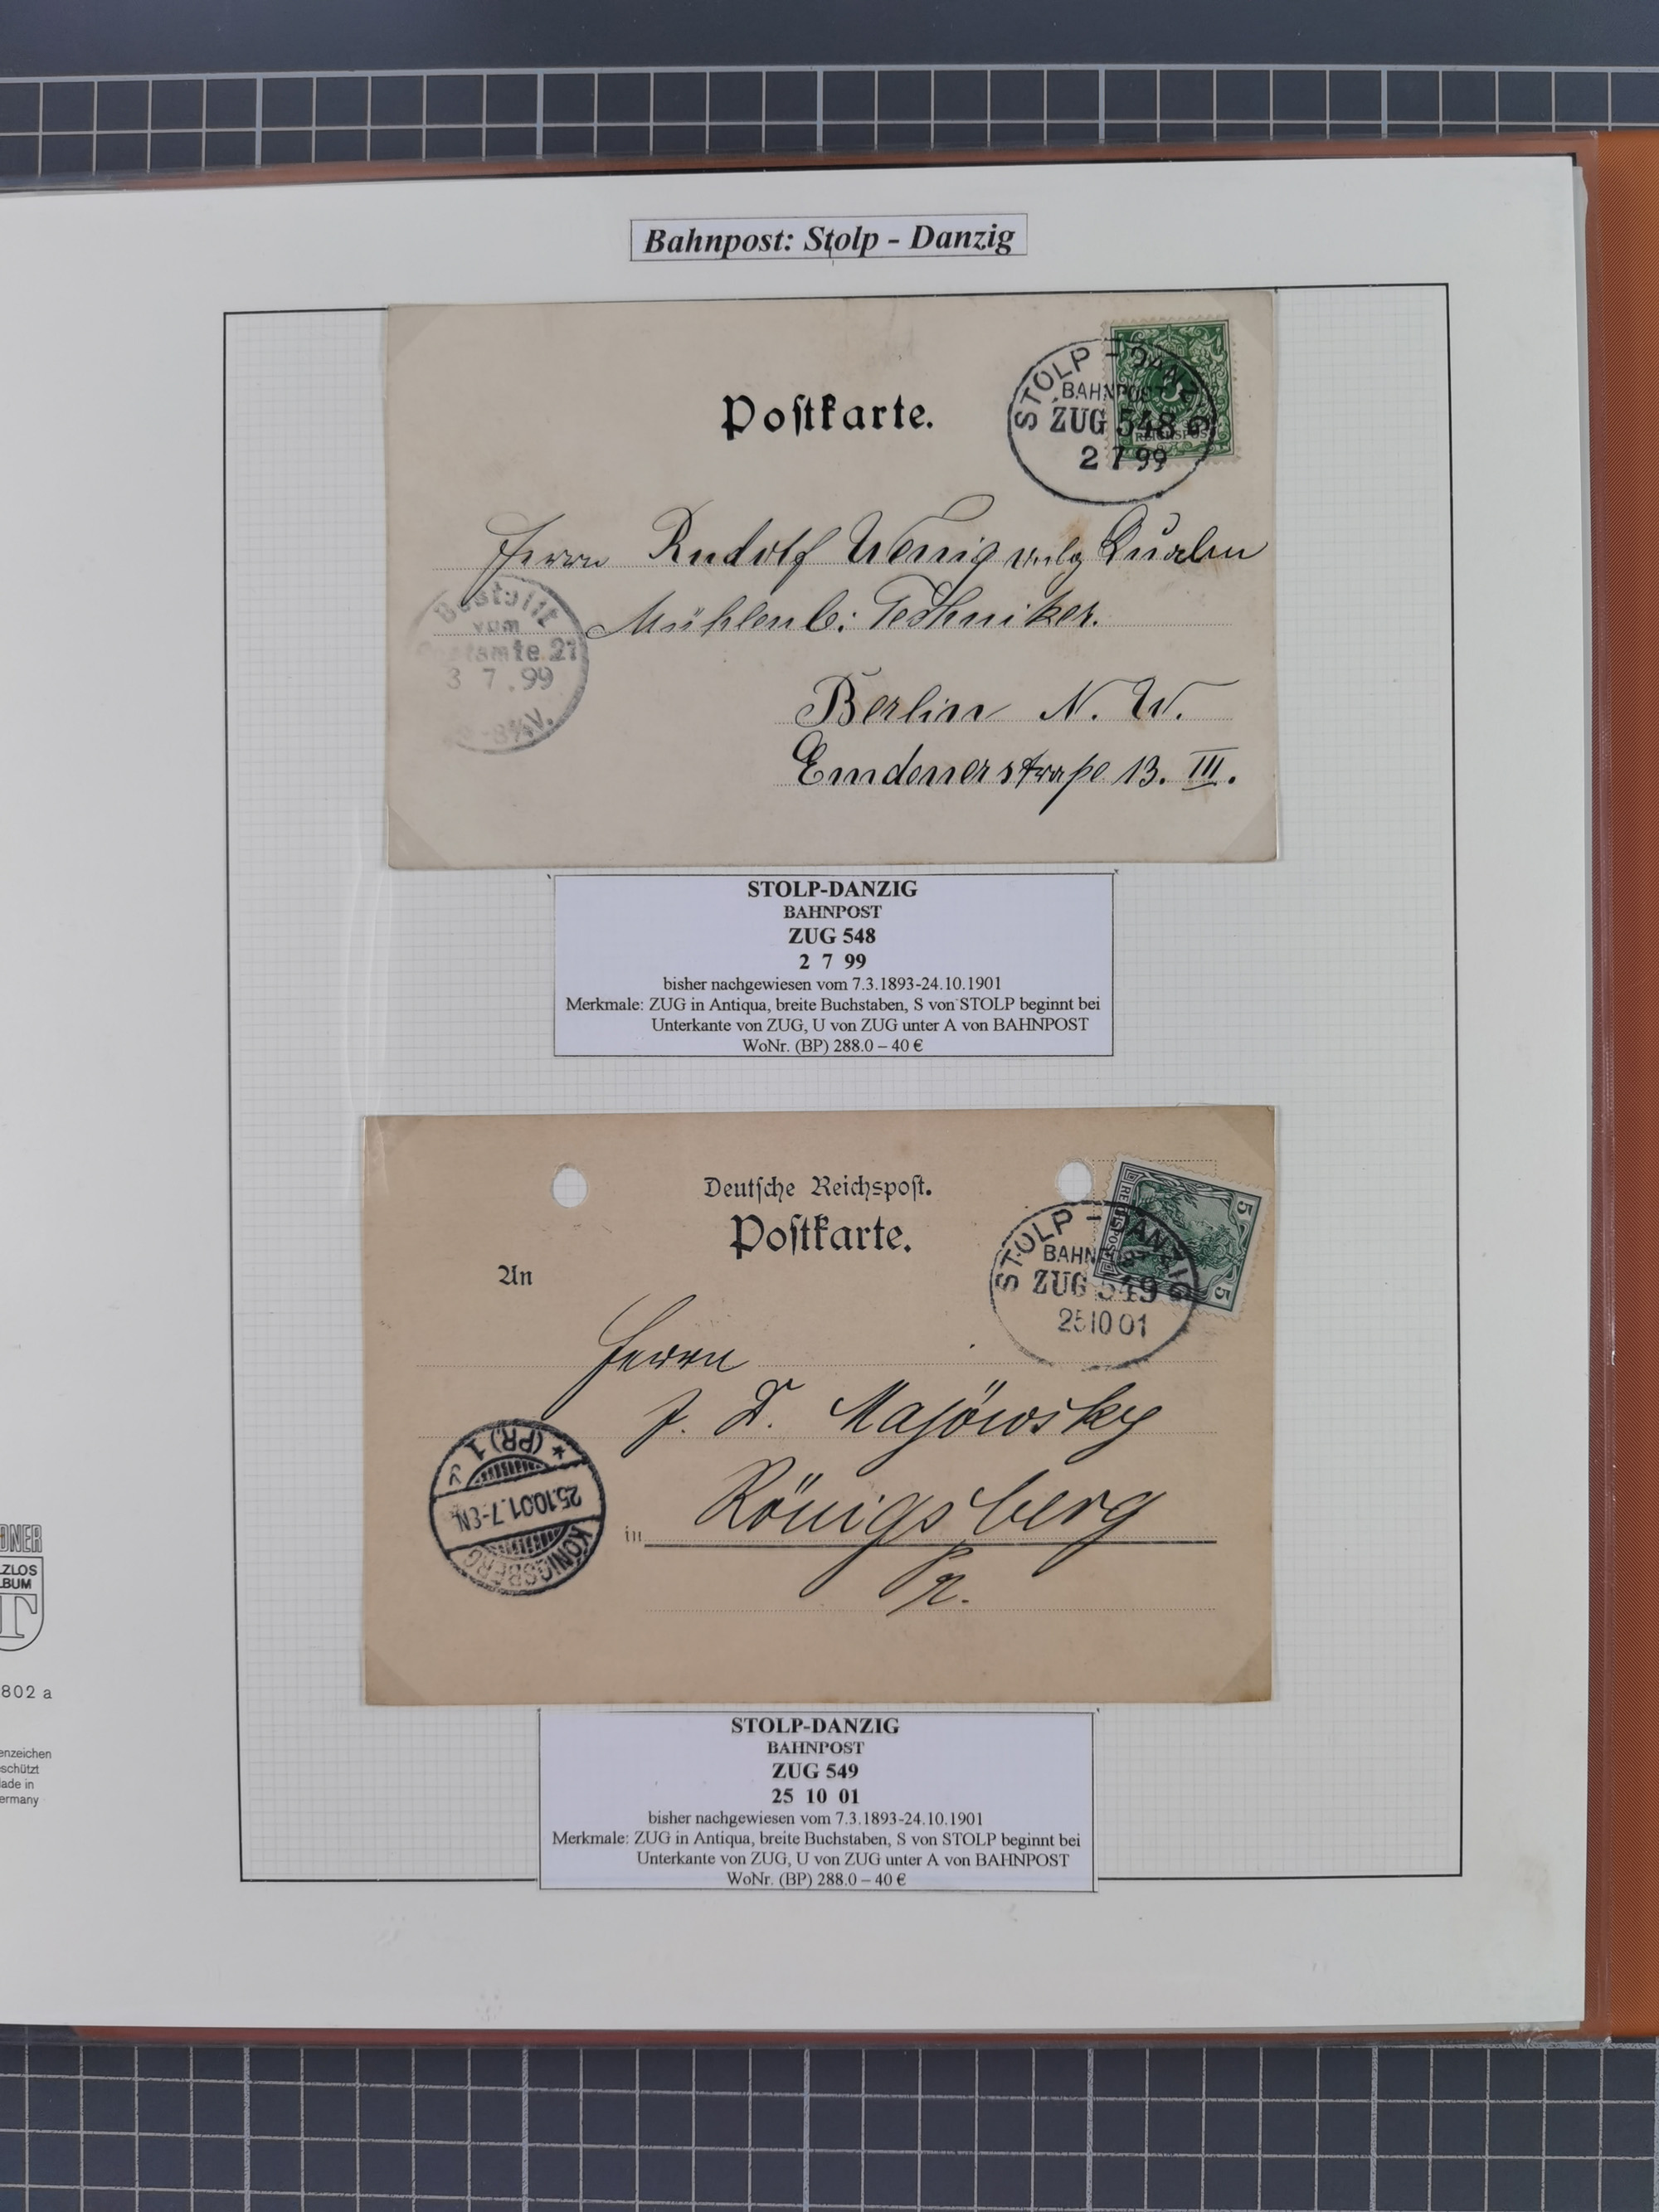 Bahnpost: Stolp - Danzig
STOLP - DANZIG
BAHNPOST
ZUG 548
2 7 99
REICHSPOST
Poſtkarte.
Herrn Rudolf Wenig
Mühlenb: Techniker.
Berlin N. W.
Emdenerstraße 13. III.
Bestellt
vom
Postamte 21
3 7. 99
STOLP-DANZIG
BAHNPOST
ZUG 548
2 7 99
bisher nachgewiesen vom 7.3.1893-24.10.1901
Merkmale: ZUG in Antiqua, breite Buchstaben, S von STOLP beginnt bei
Unterkante von ZUG, U von ZUG unter A von BAHNPOST
WoNr. (BP) 288.0 – 40 €
Deutſche Reichspoſt.
Poſtkarte.
STOLP - DANZIG
BAHNPOST
ZUG 549
25 10 01
5
REICHSPOST
5
An
Herrn
J. D. Majöwsky
in Königsberg
Pr.
KÖNIGSBERG
25.10.01.7-8N.
* (PR.) 1
STOLP-DANZIG
BAHNPOST
ZUG 549
25 10 01
bisher nachgewiesen vom 7.3.1893-24.10.1901
Merkmale: ZUG in Antiqua, breite Buchstaben, S von STOLP beginnt bei
Unterkante von ZUG, U von ZUG unter A von BAHNPOST
WoNr. (BP) 288.0 – 40 €
DNER
ZLOS
BUM
T
802 a
enzeichen
schützt
lade in
ermany